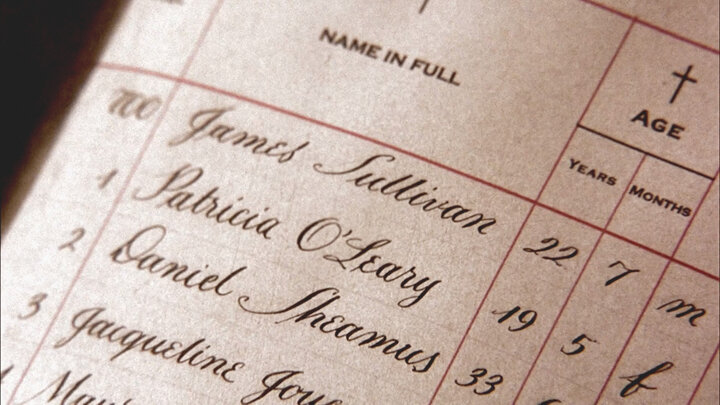 NAME IN FULL
† AGE
YEARS MONTHS
700 James Sullivan 22 7 m
1 Patricia O'Leary 19 5 f
2 Daniel Sheamus 33
3 Jacqueline